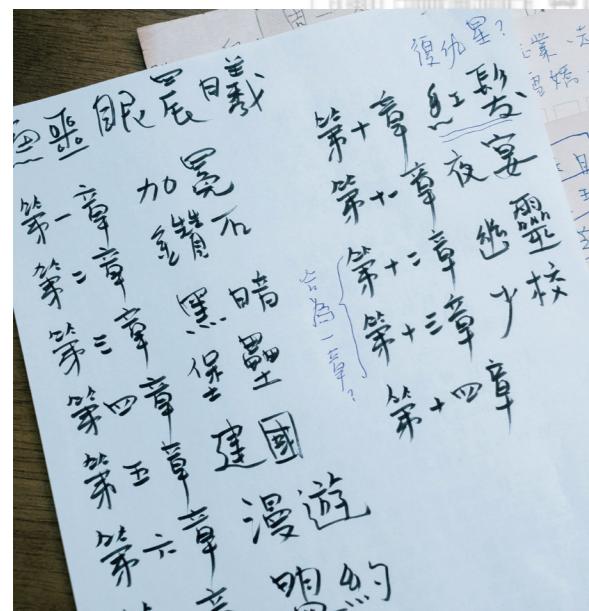 眼晨曦
第一章 加冕
第二章 鑽石
第三章 黑暗
第四章 堡壘
第五章 建國
第六章 漫遊
章 盟約
復仇星?
第十章 紅髮
第十一章 夜宴
第十二章 幽靈
第十三章 少校
合為一章?
第十四章